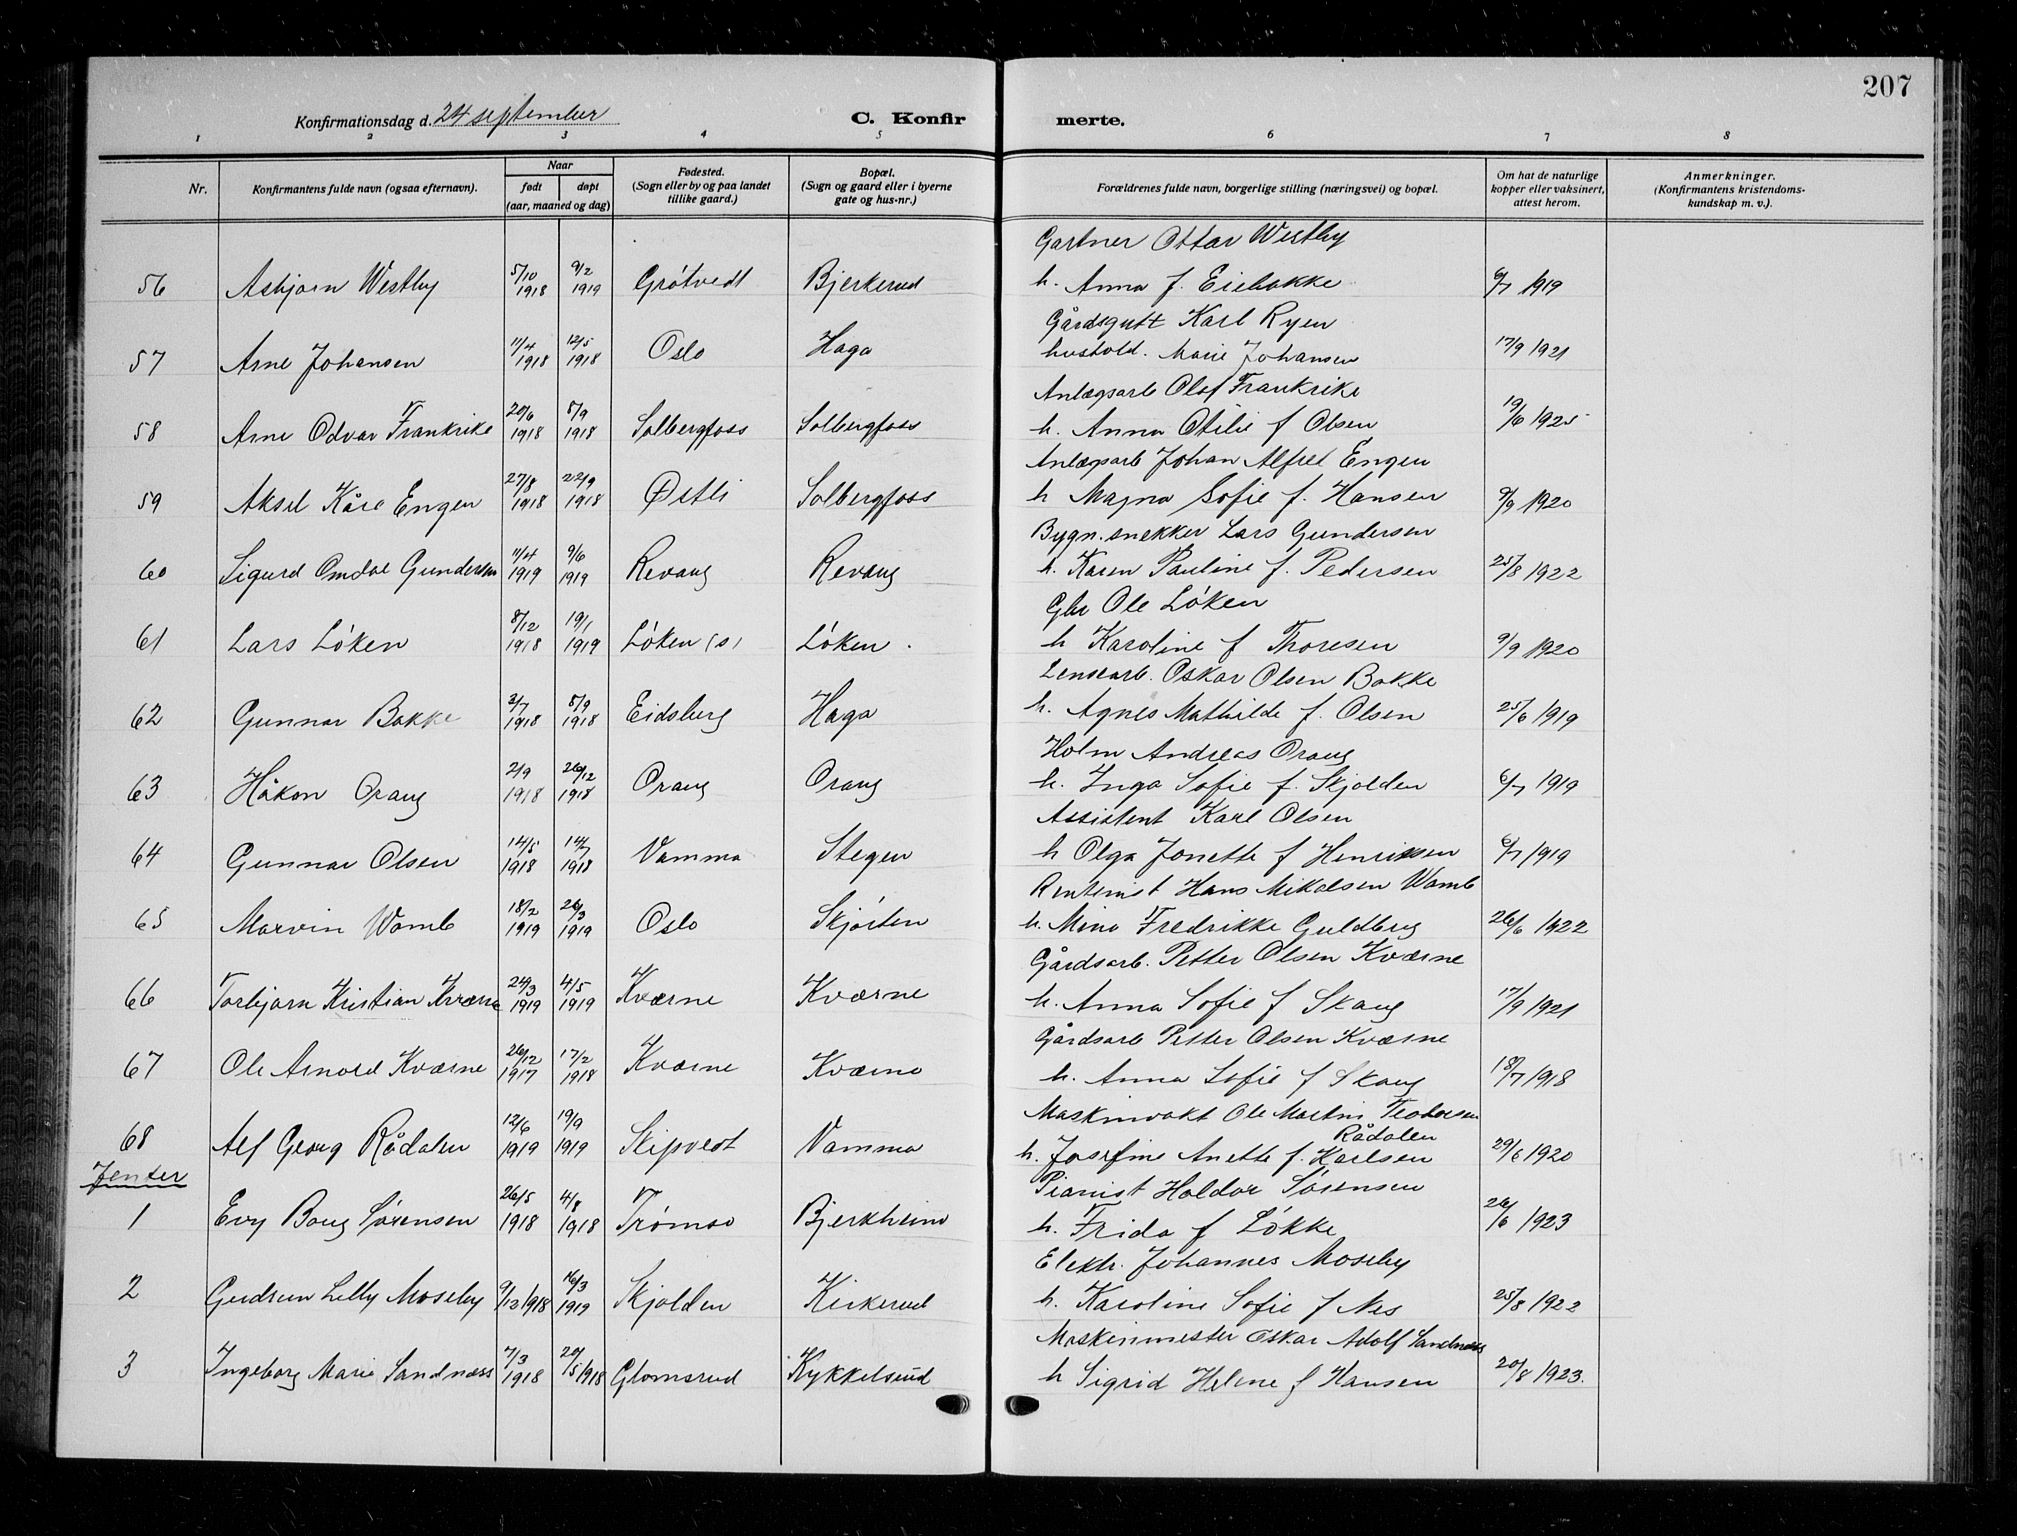 207
Konfirmationsdag d. 24 september
C. Konfir merte.
1 2 3 4 5 6 7 8
Nr. Konfirmantens fulde navn (ogsaa efternavn). Naar født døpt (aar, maaned og dag) Fødested. (Sogn eller by og paa landet tillike gaard.) Bopæl. (Sogn og gaard eller i byerne gate og hus-nr.) Forældrenes fulde navn, borgerlige stilling (næringsvei) og bopæl. Om hat de naturlige kopper eller vaksinert, attest herom. Anmerkninger. (Konfirmantens kristendoms-kundskap m. v.).
Gartner Ottar Westby
56 Asbjørn Westby 5/10 1918 9/2 1919 Grøtvedt Bjerkerud h. Anna f. Eiebakke 6/7 1919
Gårdsgutt Karl Ryen
57 Arne Johansen 11/4 1918 12/5 1918 Oslo Haga hushold. Marie Johansen 17/9 1921
Anlægsarb Olof Frankrike
58 Arne Odvar Frankrike 20/6 1918 8/9 1918 Solbergfoss Solbergfoss h. Anna Otilie f Olsen 19/6 1925
Anlægsarb Johan Alfred Engen
59 Aksel Kåre Engen 27/8 1918 22/9 1918 Østli Solbergfoss h Magna Sofie f. Hansen 9/9 1920
Bygn.snekker Lars Gundersen
60 Sigurd Omdal Gundersen 11/4 1919 9/6 1919 Revaug Revaug h. Karen Pauline f. Pedersen 25/8 1922
Gbr Ole Løken
61 Lars Løken 8/12 1918 19/1 1919 Løken (s) Løken. h Karoline f Thoresen 9/9 1920
Lensearb. Oskar Olsen Bakke
62 Gunnar Bakke 2/7 1918 8/9 1918 Eidsberg Haga h. Agnes Mathilde f. Olsen 25/6 1919
Holm Andreas Oraug
63 Håkon Oraug 2/9 1918 26/12 1918 Oraug Oraug h. Inga Sofie f. Skjolden 6/7 1919
Assistent Karl Olsen
64 Gunnar Olsen 14/5 1918 14/7 1918 Vamma Stegen h Olga Jonette f Henriksen 6/7 1919
Rentenist Hans Mikalsen Wamb
65 Marvin Wamb 18/2 1919 26/3 1919 Oslo Skjørten h. Mina Fredrikke Guldberg 26/6 1922
Gårdsarb. Petter Olsen Kværne
66 Torbjørn Kristian Kværne 24/3 1919 4/5 1919 Kværne Kværne h. Anna Sofie f Skaug 17/9 1921
Gårdsarb Petter Olsen Kværne
67 Ole Arnold Kværne 26/12 1917 17/2 1918 Kværne Kværne h. Anna Sofie f Skaug 18/7 1918
Maskinvakt Ole Martin
Rådalen
68 Alf Georg Rådalen 12/6 1919 19/9 1919 Skiptvedt Vamma h. Josefine Anette f. Karlsen 29/6 1920
Jenter
Pianist Haldor Sørensen
1 Evy Baug Sørensen 26/5 1918 4/8 1918 Trømsø Bjerkheim h. Frida f Løkke 26/6 1923
Elektr. Johannes Moseby
2 Gudrun Lelly Moseby 9/12 1918 16/3 1919 Skjolden Kirkerud h. Karoline Sofie f Nes 25/8 1922
Maskinmester Oskar Adolf Sandness
3 Ingeborg Marie Sandness 7/3 1918 20/5 1918 Glomsrud Kykkelsrud h Sigrid Helene f Hansen 20/8 1923.